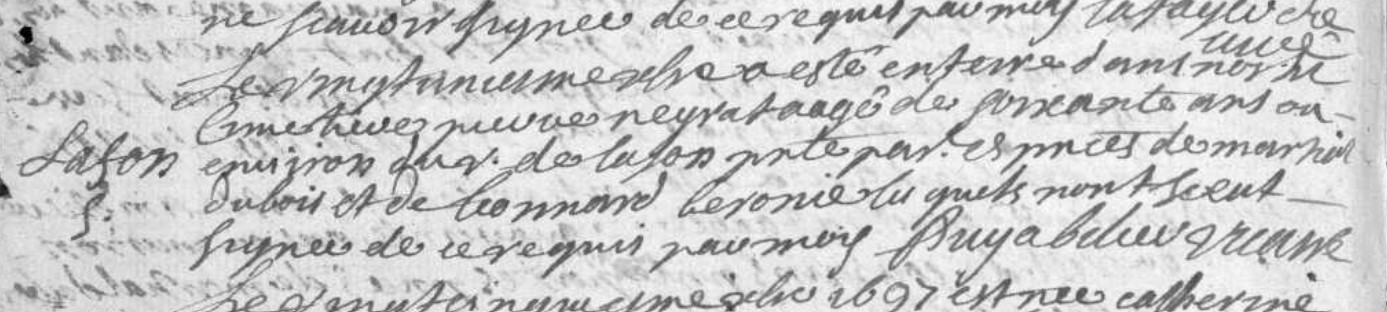 ne scavoir signer de ce requis par moy
Le vingtuniesme xbre a esté enterré dans nostre
Cimetiere pierre neyrat aagé de soixante ans ou
Lafon
environ du v. de lafon pnte par. es pnces de martial
S.
dubois et de Leonnard beronie lesquels nont sceut
signer de ce requis par moy Puyabelier vicaire
Le vingtcinquiesme xbre 1697 est nee catherine